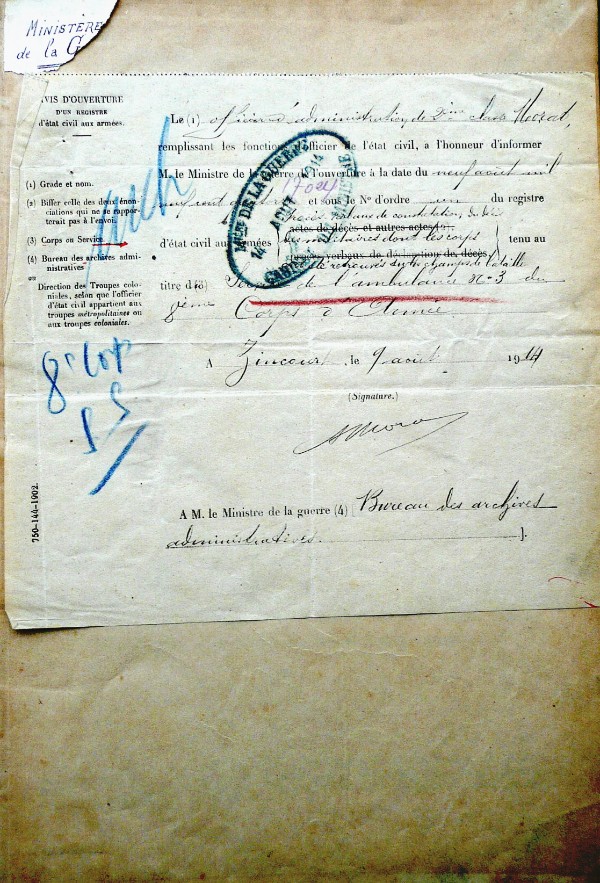 MINISTÈRE
de la G
AVIS D'OUVERTURE
D'UN REGISTRE
d'état civil aux armées.
(1) Grade et nom.
(2) Biffer celle des deux énonciations qui ne se rapporterait pas à l'envoi.
(3) Corps ou Service
(4) Bureau des archives administratives
ou
Direction des Troupes coloniales, selon que l'officier d'état civil appartient aux troupes métropolitaines ou aux troupes coloniales.
8e Corps
750-144-1902.
Le (1) officier d'administration de 2ème classe Morat,
remplissant les fonctions d'officier de l'état civil, a l'honneur d'informer
M. le Ministre de la guerre de l'ouverture à la date du neuf août mil
neuf cent et sous le No d'ordre un du registre
procès verbaux de constitution du décès
actes de décès et autres actes (2)
d'état civil aux armées des militaires dont les corps tenu au
procès verbaux de déclaration de décès
retrouvés sur les champs de bataille
titre d (3) de l'ambulance No 3 du
8ème Corps d'Armée
MIN DE LA GUERRE
14 AOUT 1914
A Zincourt, le 9 août 1914
(Signature.)
A M. le Ministre de la guerre (4) Bureau des archives
administratives. ].